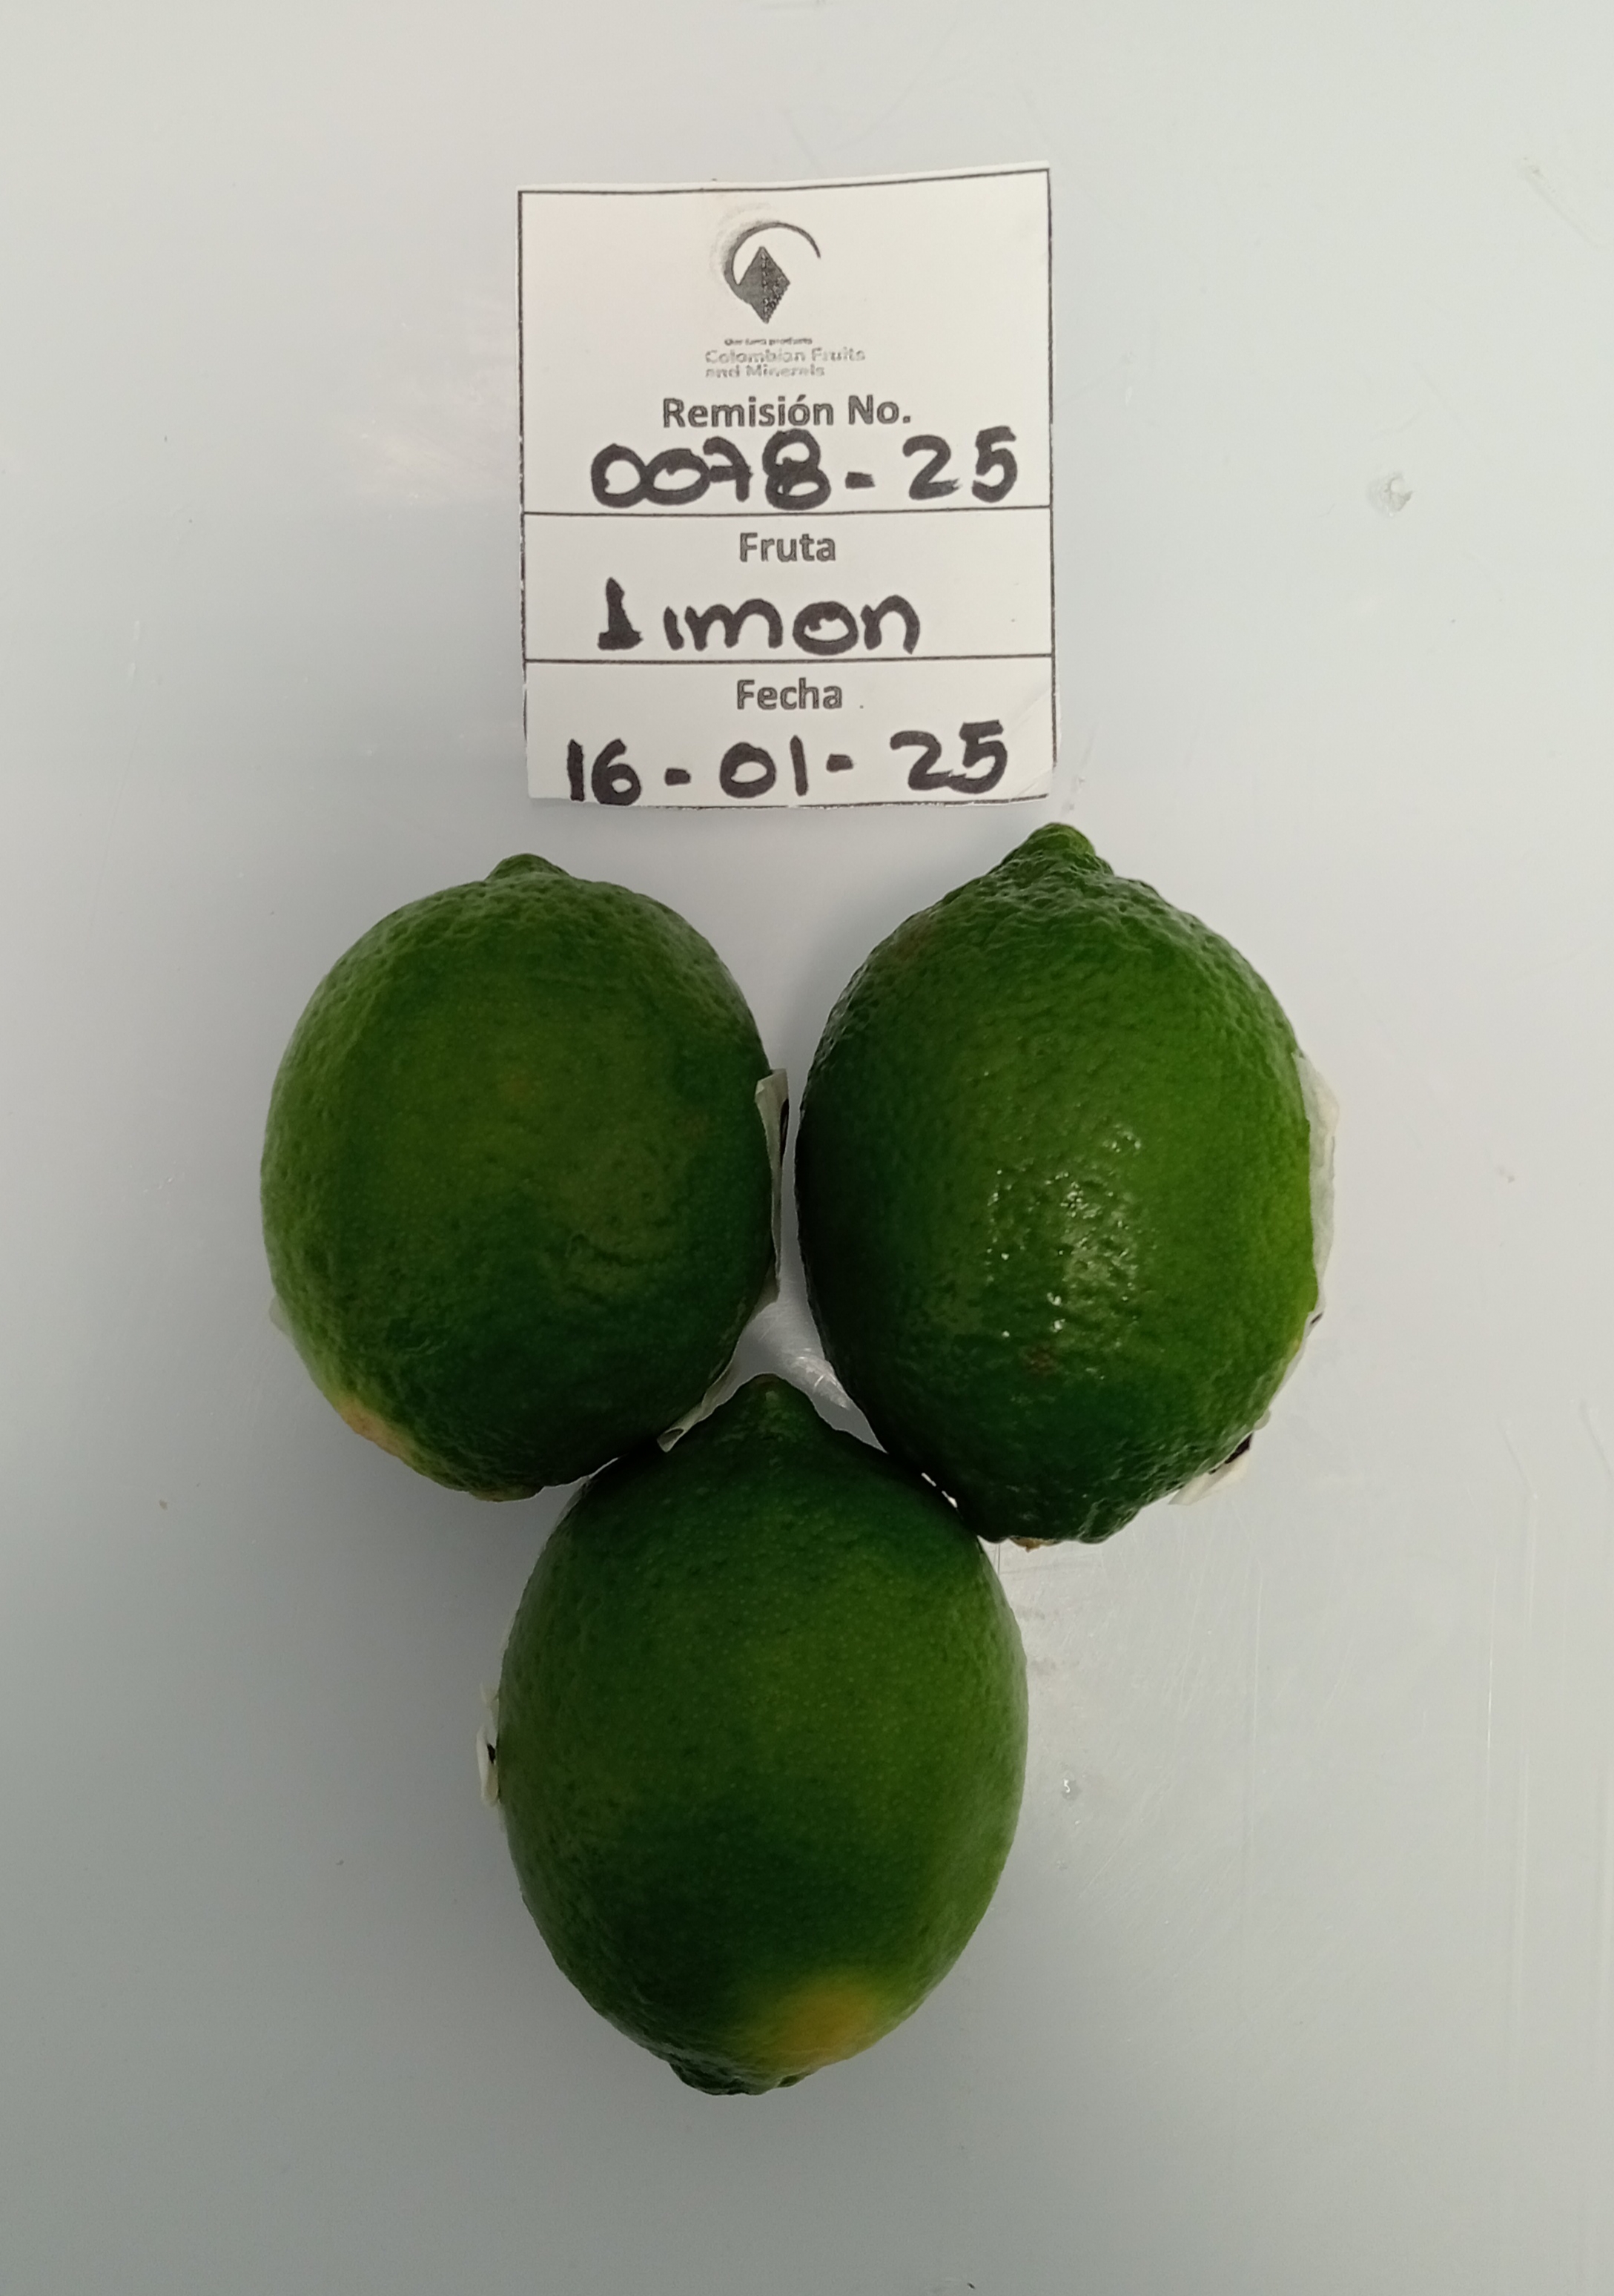 Our best products
Colombian Fruits
and Minerals
Remisión No.
0078-25
Fruta
Limon
Fecha
16-01-25